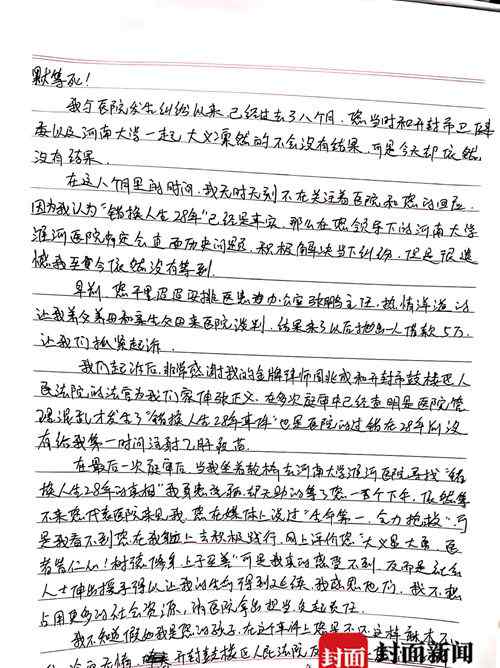 默等死!
我与医院发生纠纷以来,已经过去了八个月,您当时和开封市卫健
委以及河南大学一起大义凛然的不会没有结果,可是今天却依然
没有结果。
在这八个月里的时间,我无时无刻不在关注着医院和您的回应,
因为我认为“错换人生28年”已经是事实,那么在您领导下的河南大学
淮河医院肯定会直面历史问题,积极解决当下纠纷,但是很遗
憾我至今依然没有等到。
早前,您千里迢迢安排医患办办公室张鹏主任,热情洋溢的
让我养父养母和亲生父母来医院谈判,结果来了以后抛出一人借款5万,
让我们抓紧起诉。
我们起诉后,非常感谢我的金牌律师周兆成和开封市鼓楼区人
民法院的法官为我们家伸张正义,在多次庭审中已经查明是医院管
理混乱才发生了“错换人生28年事件”也是医院的过错在28年前没
有给我第一时间注射乙肝疫苗。
在最后一次庭审后,当我坐着轮椅去河南大学淮河医院寻找“错
换人生28年的真相”我
却无助的等了您一整个下午,依然等
不来您代表医院来见我,您在媒体上说过“生命第一,全力抢救”可
是我看不到您在我
上去积极践行,网上评价您“大义是大勇,医
者皆仁心!树强
身上予至善”可是我真的感受不到,反而是社会
人士伸出援手得以让我的生命得到延续,我感恩他们,我不想
占用更多的社会资源,请医院拿出担当负起责任。
我不知道假如我是您的孩子,在这个事件上您是不是还这样
开封鼓楼区人民法院
封面 封面新闻